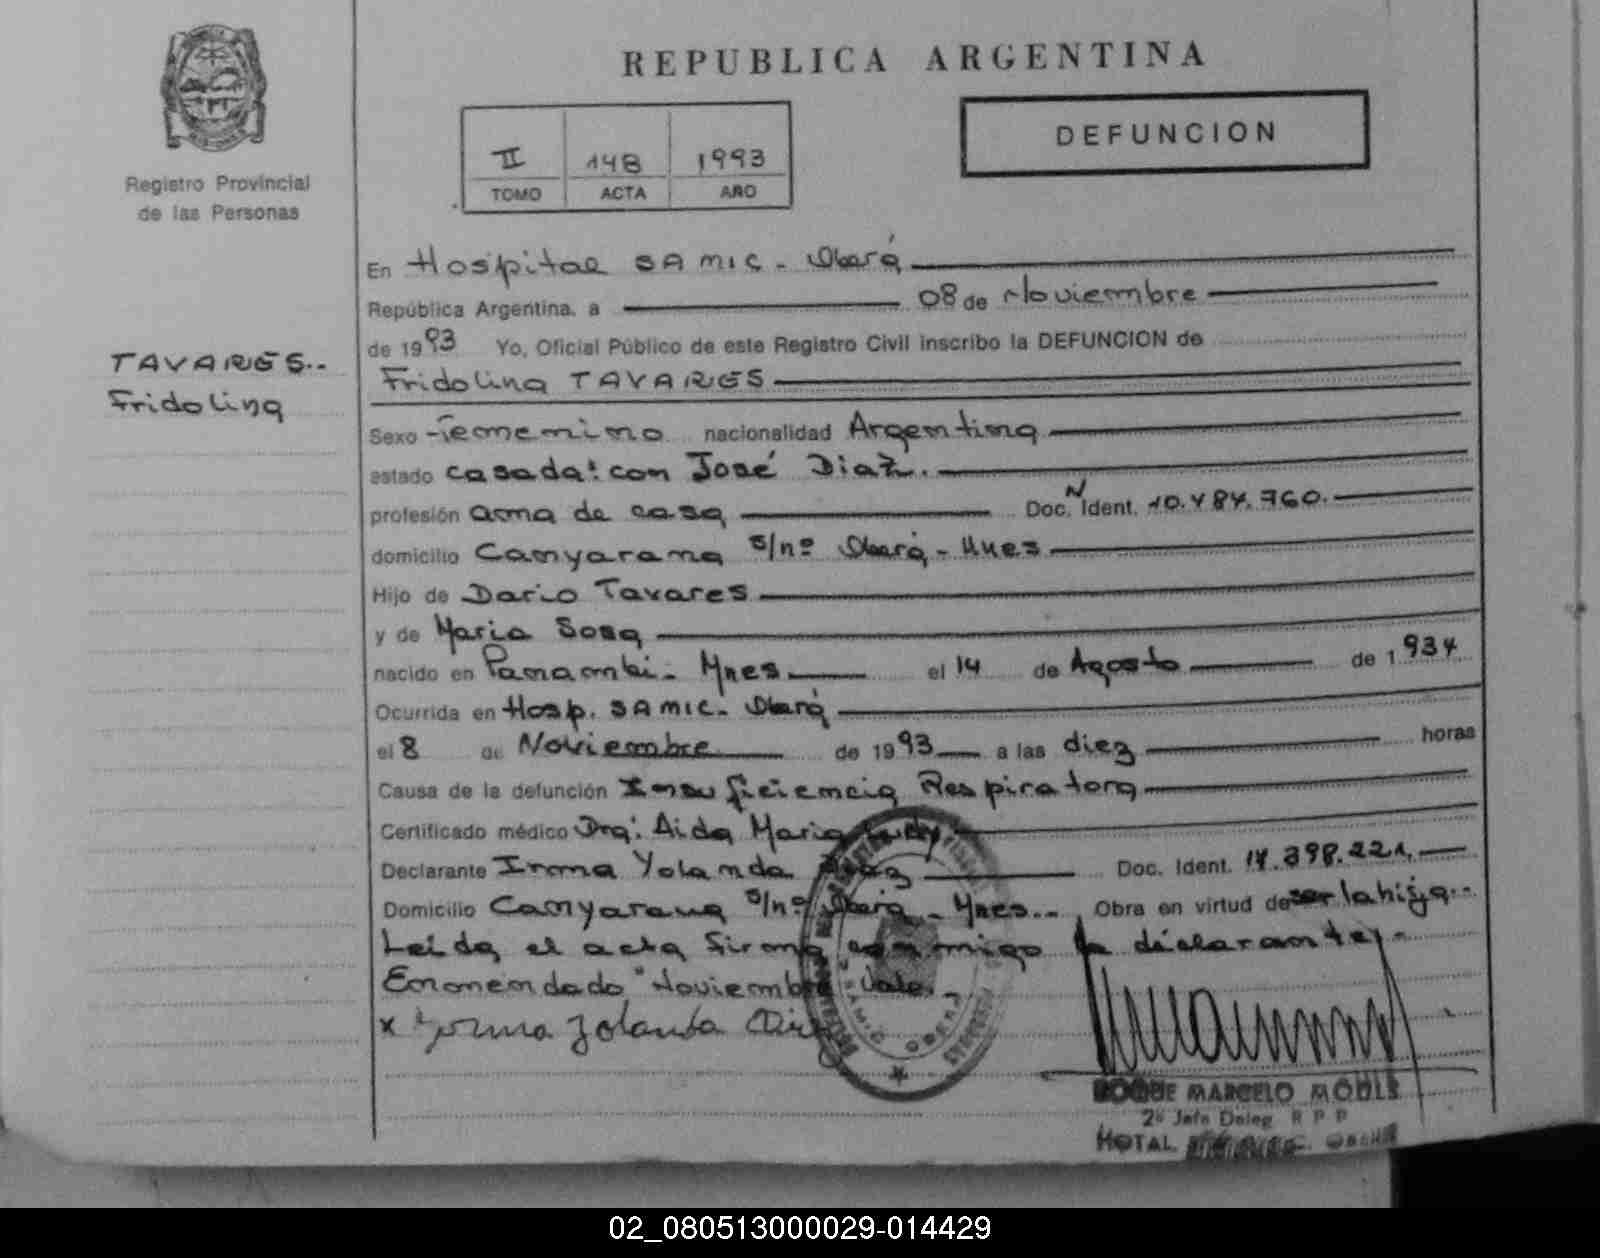 REPUBLICA ARGENTINA
DEFUNCION
II 148 1993
TOMO ACTA AÑO
Registro Provincial
de las Personas
TAVARES..
Fridolina
En Hospital SAMIC. Oberá
República Argentina, a 08 de Noviembre
de 1993 Yo, Oficial Público de este Registro Civil inscribo la DEFUNCION de
Fridolina TAVARES
Sexo Femenino nacionalidad Argentina
estado casada: con José Diaz.
profesión ama de casa Doc. N Ident. 10.484.760.-
domicilio Camyarana s/nº Oberá - Mnes
Hijo de Dario Tavares
y de Maria Sosa
nacido en Panambi - Mnes el 14 de Agosto de 1934
Ocurrida en Hosp. SAMIC. Oberá
el 8 de Noviembre de 1993 a las diez horas
Causa de la defunción Insuficiencia Respiratora
Certificado médico Dra: Aida Maria
Declarante Irma Yolanda Diaz Doc. Ident. 14.398.221.
Domicilio Camyarana s/nº Oberá - Mnes.. Obra en virtud de ser la hija..
Leida el acta firma conmigo la declarante.-
Enmendado "Noviembre Vale.
x Irma Yolanda Diaz
OBERA
ROQUE MARCELO
2º Jefe Deleg. R P P
OBERA
02_080513000029-014429